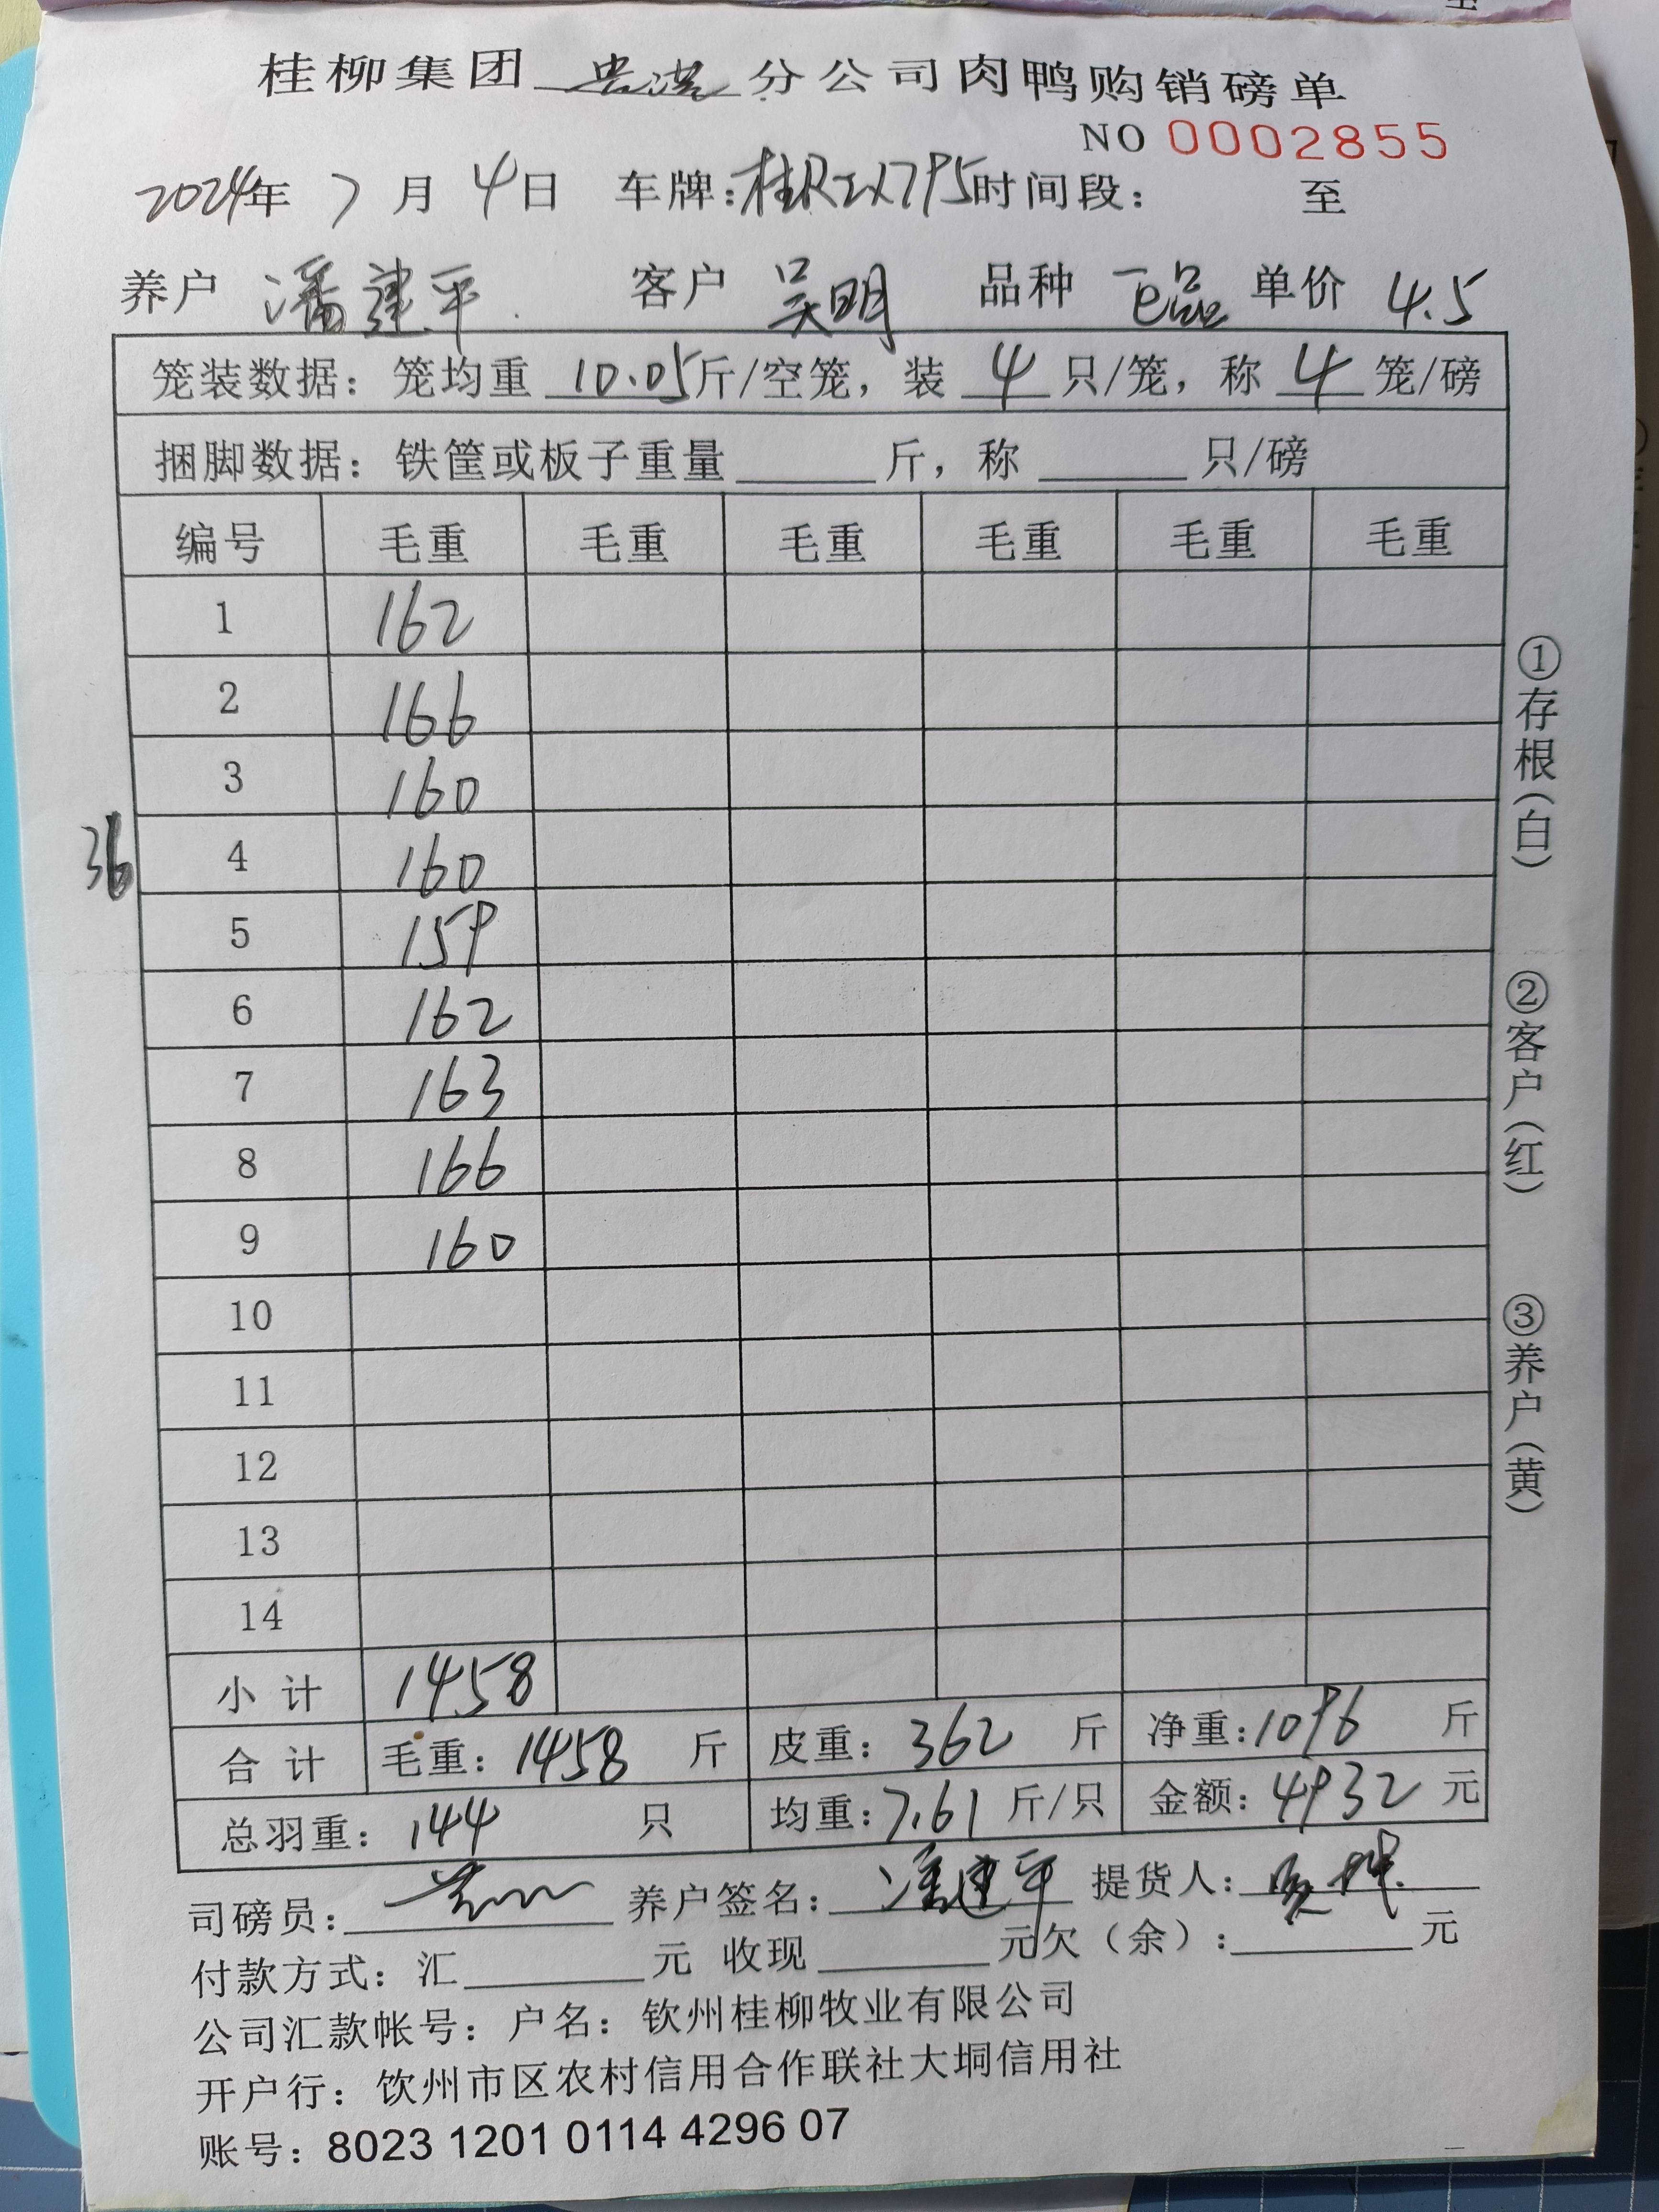 桂柳集团 分公司肉鸭购销磅单
NO 0002855
2024年 7 月 4 日 车牌:桂RZX795 时间段: 至
养户 潘建平 客户 吴明 品种 单价 4.5
笼装数据: 笼均重 10.05 斤/空笼, 装 4 只/笼, 称 4 笼/磅
捆脚数据: 铁筐或板子重量 斤, 称 只/磅
编号 毛重 毛重 毛重 毛重 毛重 毛重
1 162
2 166
3 160
36
4 160
5 159
6 162
7 163
8 166
9 160
10
11
12
13
14
小计 1458
合计 毛重: 1458 斤 皮重: 362 斤 净重: 1096 斤
总羽重: 144 只 均重: 7.61 斤/只 金额: 4932 元
司磅员: 养户签名: 潘建平 提货人:
付款方式: 汇 元 收现 元欠(余): 元
公司汇款帐号: 户名: 钦州桂柳牧业有限公司
开户行: 钦州市区农村信用合作联社大垌信用社
账号: 8023 1201 0114 4296 07
①存根(白)
②客户(红)
③养户(黄)